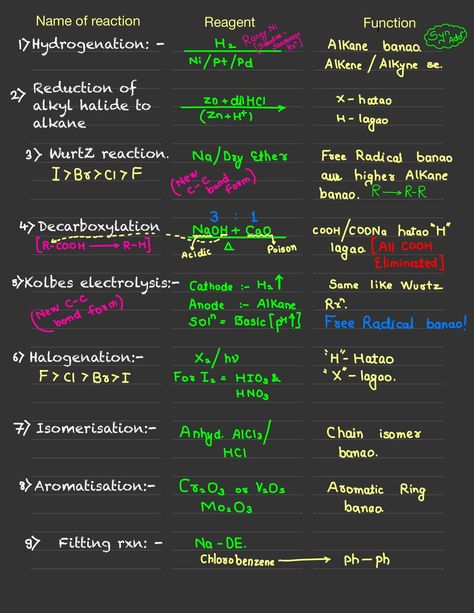 Name of reaction Reagent Function
1) Hydrogenation: - H₂ / Ni/Pt/Pd Raney Ni Alkane banao. Syn Add
Alkene/Alkyne se.
2) Reduction of alkyl halide to alkane Zn+dilHCl (Zn+H⁺) X-hatao
H-lagao
3) WurtZ reaction. Na/Dry Ether Free Radical banao
I>Br>Cl>F (New C-C bond form) aur higher Alkane
banao. R→R-R
4) Decarboxylation 3 : 1 COOH/COONa hatao "H"
[R-COOH → R-H] NaOH + CaO lagao. [All COOH
Δ Acidic Poison Eliminated]
5) Kolbes electrolysis:- Cathode :- H₂↑ Same like Wurtz
(New C-C bond form) Anode :- Alkane Rxⁿ.
Solⁿ = Basic[pH↑] Free Radical banao!
6) Halogenation:- X₂/hν "H"-Hatao
F>Cl>Br>I For I₂ = HIO₃ & HNO₃ "X"-lagao.
7) Isomerisation:- Anhyd. AlCl₃/ Chain isomer
HCl banao.
8) Aromatisation:- Cr₂O₃ or V₂O₅ Aromatic Ring
Mo₂O₃ banao
9) Fitting rxn: - Na-DE.
Chlorobenzene → ph-ph